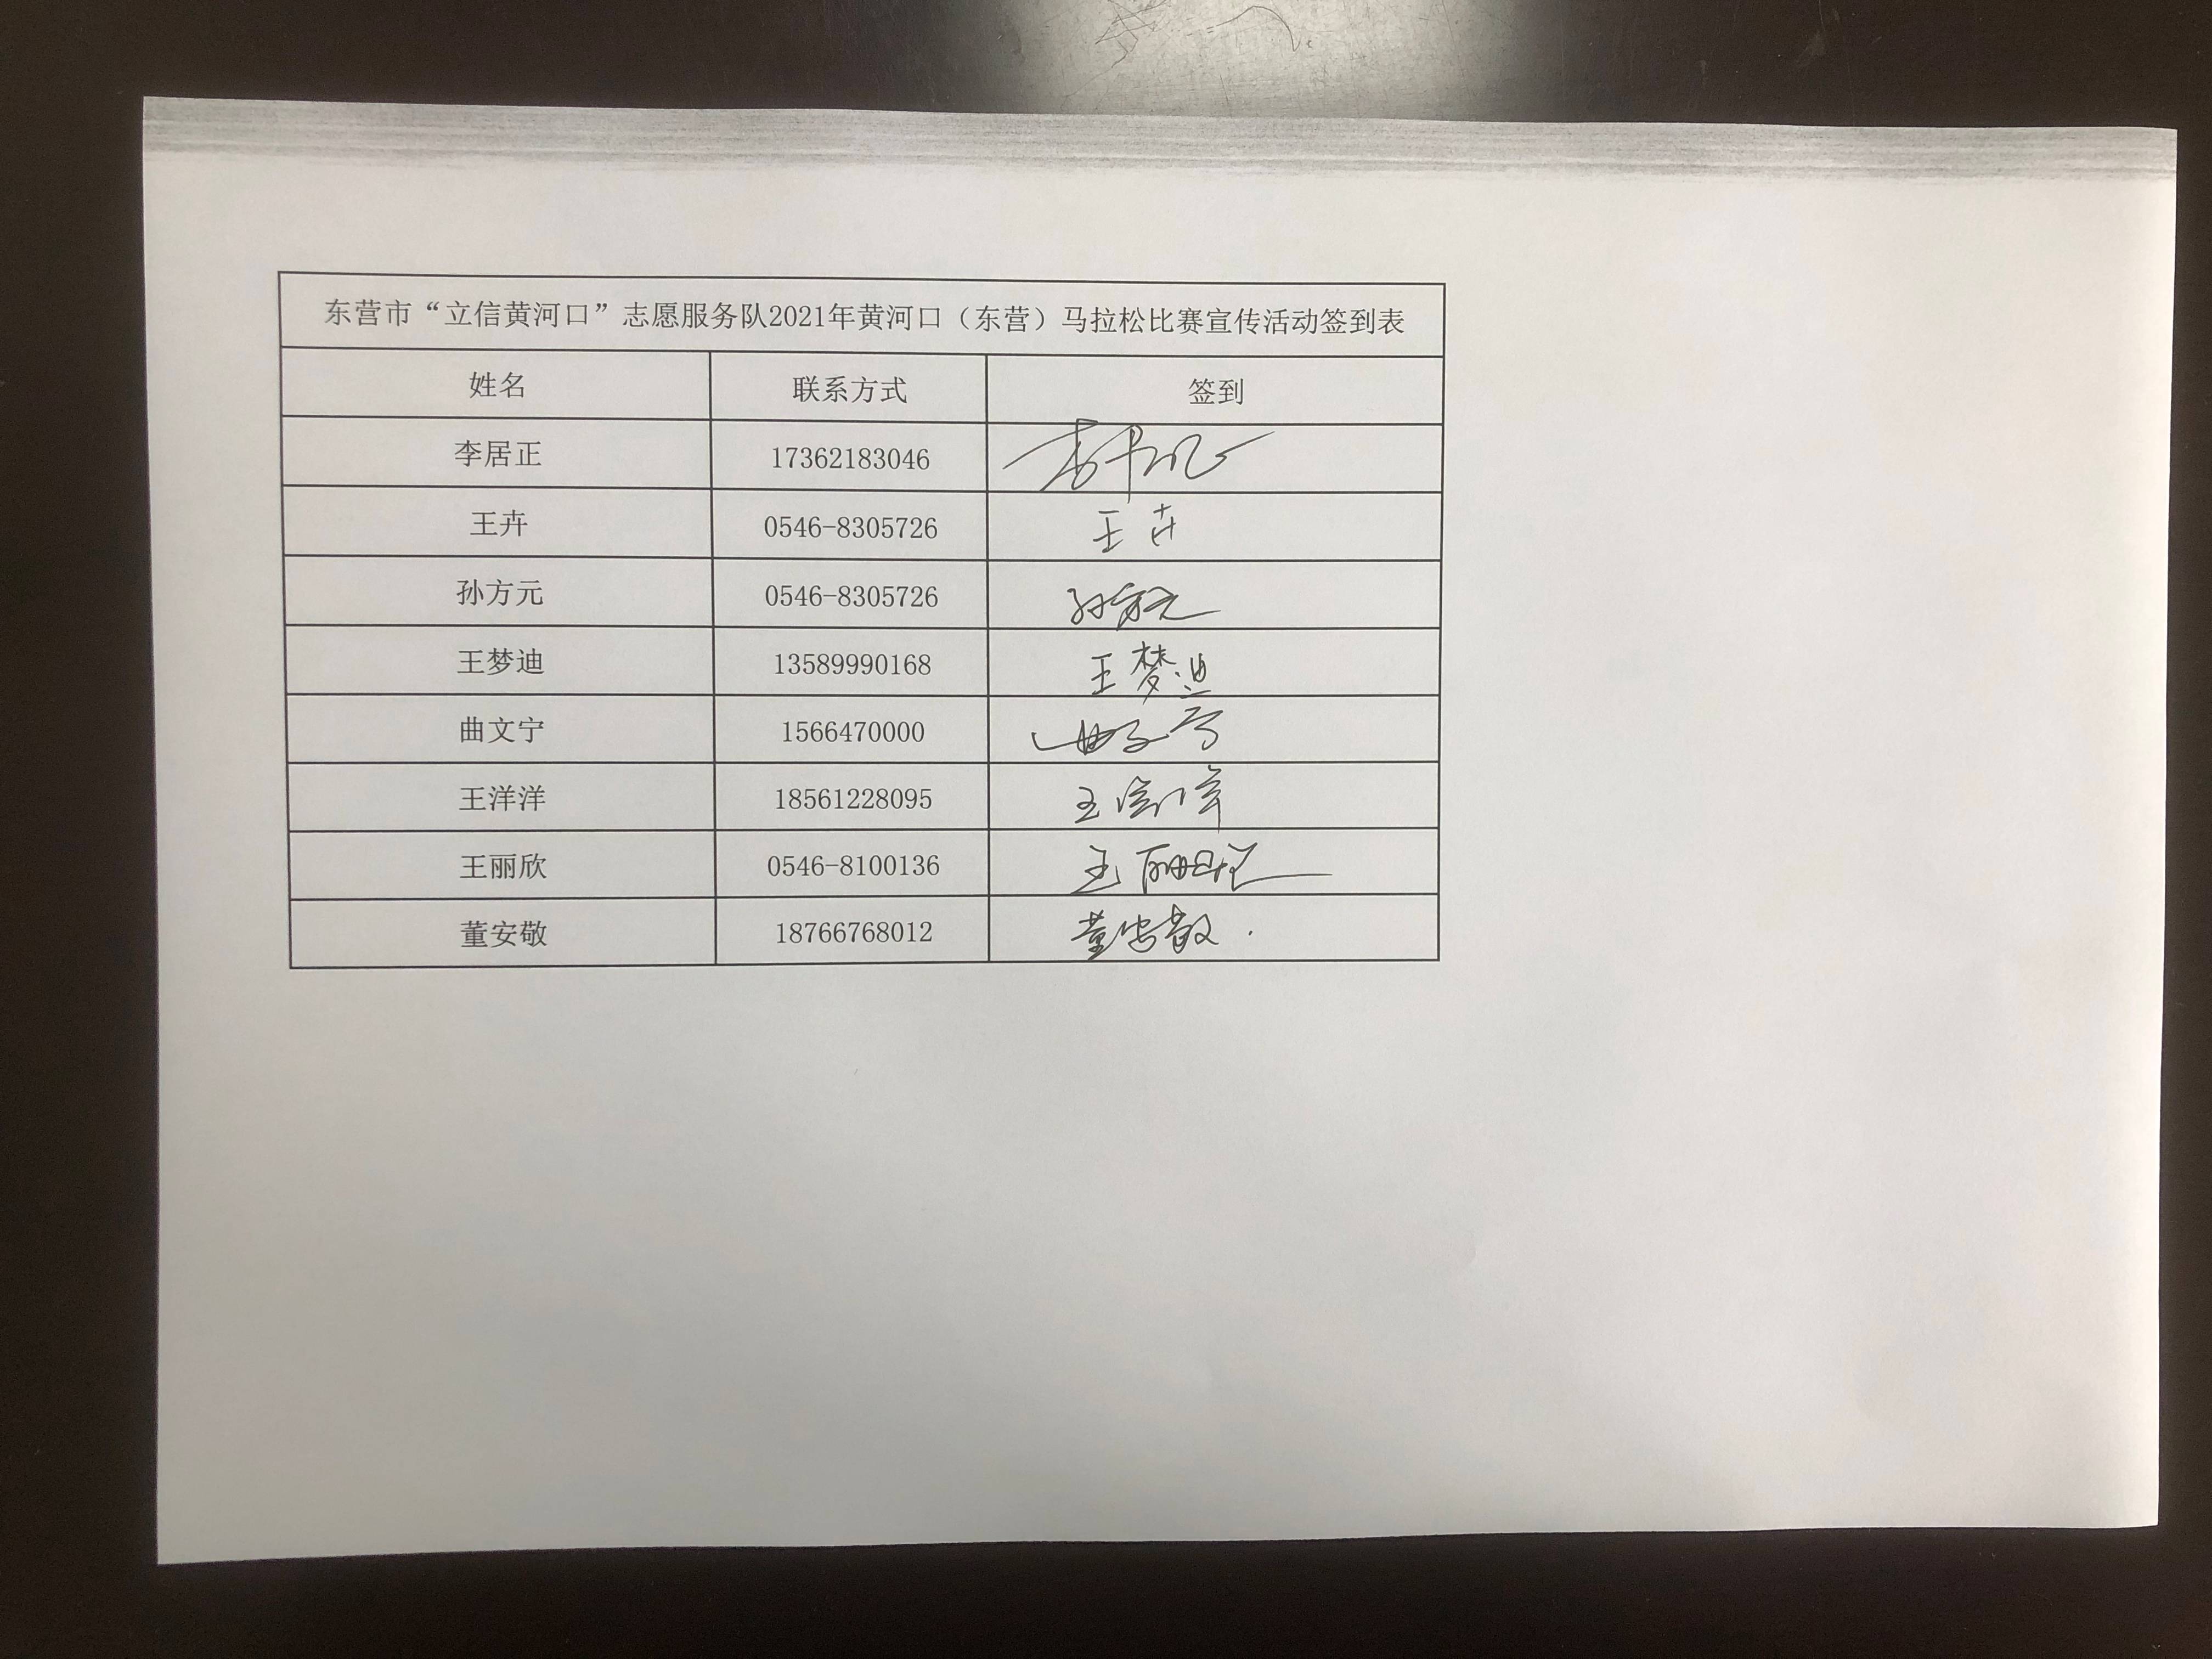 东营市“立信黄河口”志愿服务队2021年黄河口（东营）马拉松比赛宣传活动签到表
姓名 联系方式 签到
李居正 17362183046
王卉 0546-8305726 王卉
孙方元 0546-8305726 孙方元
王梦迪 13589990168 王梦迪
曲文宁 1566470000 曲文宁
王洋洋 18561228095 王洋洋
王丽欣 0546-8100136 王丽欣
董安敬 18766768012 董安敬